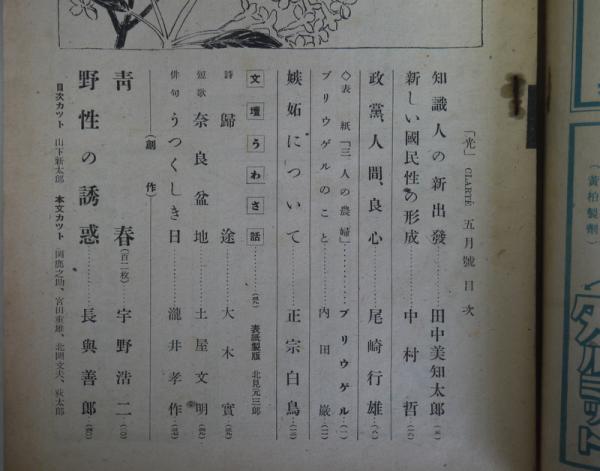 「光」 CLARTÉ 五月號目次
知識人の新出發………田中美知太郎
新しい國民性の形成………中村哲
政黨、人間、良心………尾崎行雄
◇表紙「三人の農婦」………ブリウゲル(一)
ブリウゲルのこと………内田巖
嫉妬について………正宗白鳥
文壇うわさ話………表紙製版 北見元三郎
詩 歸途………大木實
短歌 奈良盆地………土屋文明
俳句 うつくしき日………瀧井孝作
(創作)
靑春(百二枚)………宇野浩二
野性の誘惑………長與善郎
目次カツト 山下新太郎 本文カツト 岡鹿之助、宮田重雄、北岡文夫、荻太郎
(黃柏製劑)